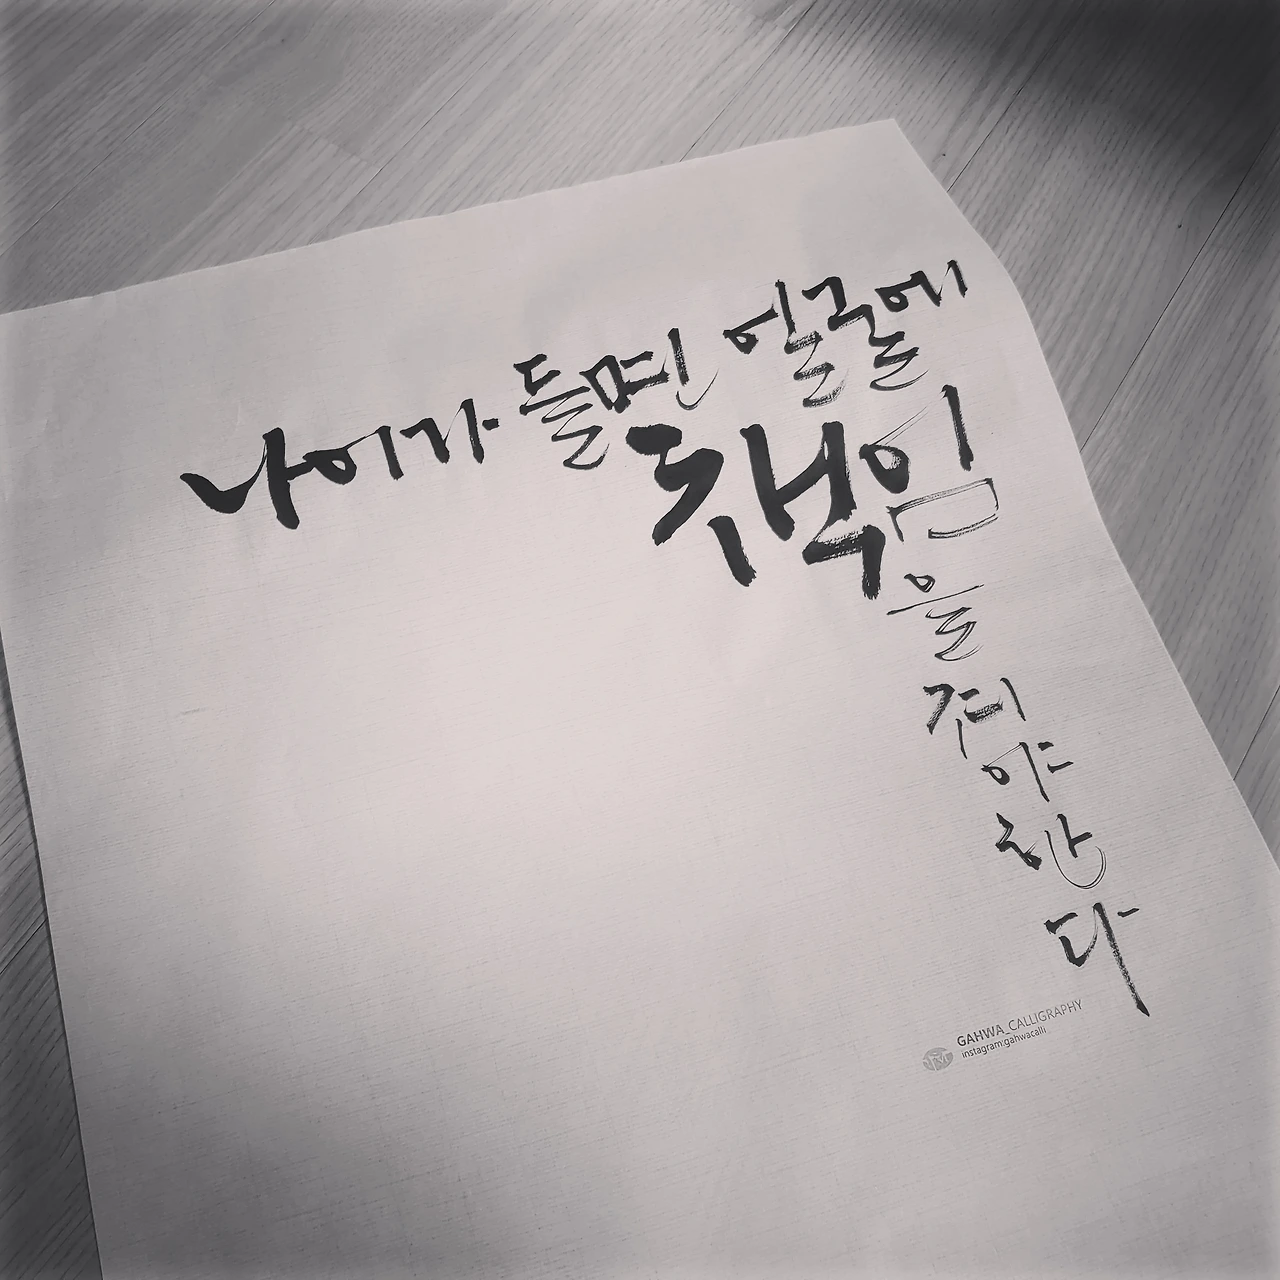 나이가 들면 얼굴에
책임
을
져
야
한
다
GAHWA_CALLIGRAPHY
instagram:gahwacalli